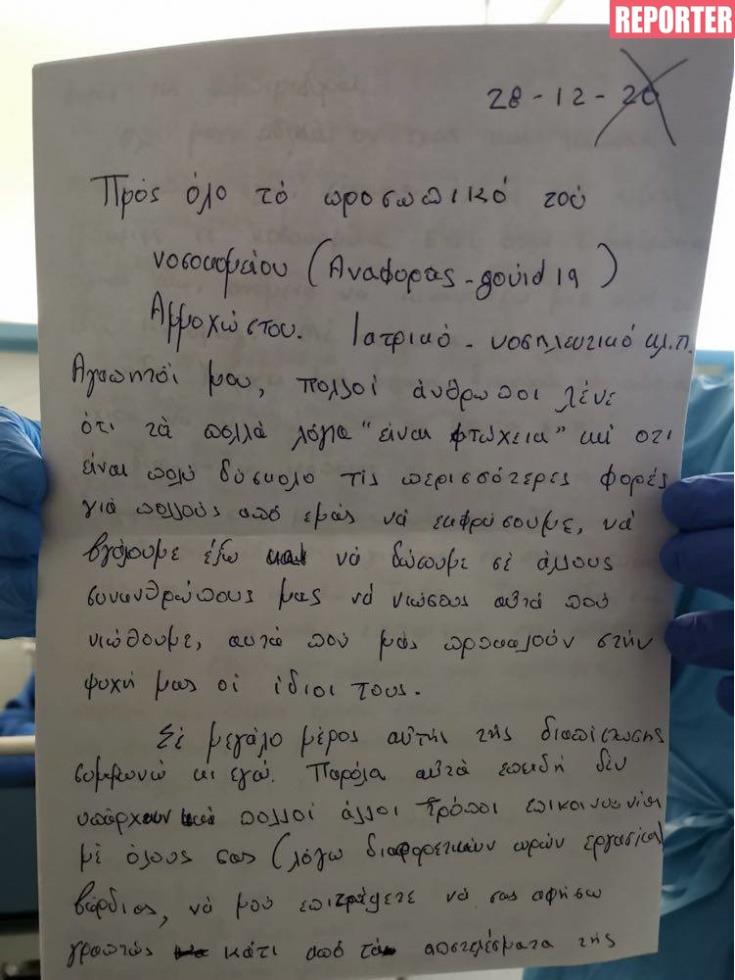 REPORTER
28-12-20
Πρός όλο τό προσωπικό τού
νοσοκομείου (Αναφοράς - govid 19)
Αμμοχώστου. Ιατρικό - νοσηλευτικό κλ.π.
Αγαπητοί μου, πολλοί άνθρωποι λένε
ότι τά πολλά λόγια "είναι φτώχεια" κι' οτι
είναι πολύ δύσκολο τίς περισσότερες φορές
γιά πολλούς από εμάς νά εκφράσουμε, νά
βγάλουμε έξω και νά δώσουμε σέ άλλους
συνανθρώπους μας νά νιώσουν αυτά πού
νιώθουμε, αυτά πού μάς προκαλούν στήν
ψυχή μας οι ίδιοι τους.
Σέ μεγάλο μέρος αυτής τής διαπίστωσης
συμφωνώ κι εγώ. Παρόλα αυτά επειδή δεν
υπάρχουν πολλοί άλλοι τρόποι επικοινωνίας
μέ όλους σας (λόγω διαφορετικών ωρών εργασίας
βάρδιας, νά μού επιτρέψετε νά σας αφήσω
γραπτώς κάτι από τά αποτελέσματα τής